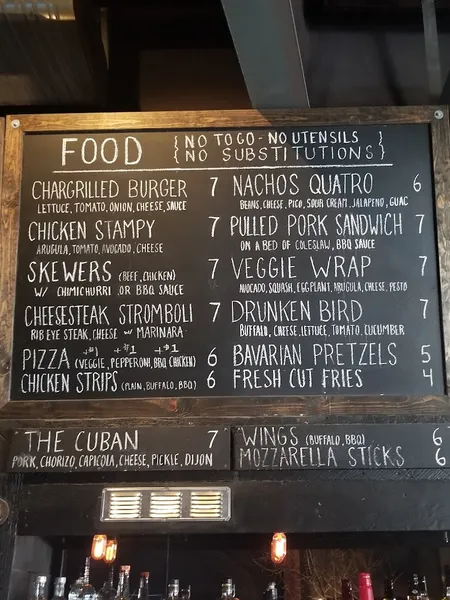 FOOD
{NO TO GO - NO UTENSILS
{NO SUBSTITUTIONS}
CHARGRILLED BURGER 7
LETTUCE, TOMATO, ONION, CHEESE, SAUCE
CHICKEN STAMPY 7
ARUGULA, TOMATO, AVOCADO, CHEESE
SKEWERS (BEEF, CHICKEN) 7
W/ CHIMICHURRI OR BBQ SAUCE
CHEESESTEAK STROMBOLI 7
RIB EYE STEAK, CHEESE W/ MARINARA
+$1 +$1 +$1
PIZZA (VEGGIE, PEPPERONI, BBQ CHICKEN) 6
CHICKEN STRIPS (PLAIN, BUFFALO, BBQ) 6
NACHOS QUATRO 6
BEANS, CHEESE, PICO, SOUR CREAM, JALAPENO, GUAC
PULLED PORK SANDWICH 7
ON A BED OF COLESLAW, BBQ SAUCE
VEGGIE WRAP 7
AVOCADO, SQUASH, EGGPLANT, ARUGULA, CHEESE, PESTO
DRUNKEN BIRD 7
BUFFALO, CHEESE, LETTUCE, TOMATO, CUCUMBER
BAVARIAN PRETZELS 5
FRESH CUT FRIES 4
THE CUBAN 7
PORK, CHORIZO, CAPICOLA, CHEESE, PICKLE, DIJON
WINGS (BUFFALO, BBQ) 6
MOZZARELLA STICKS 6